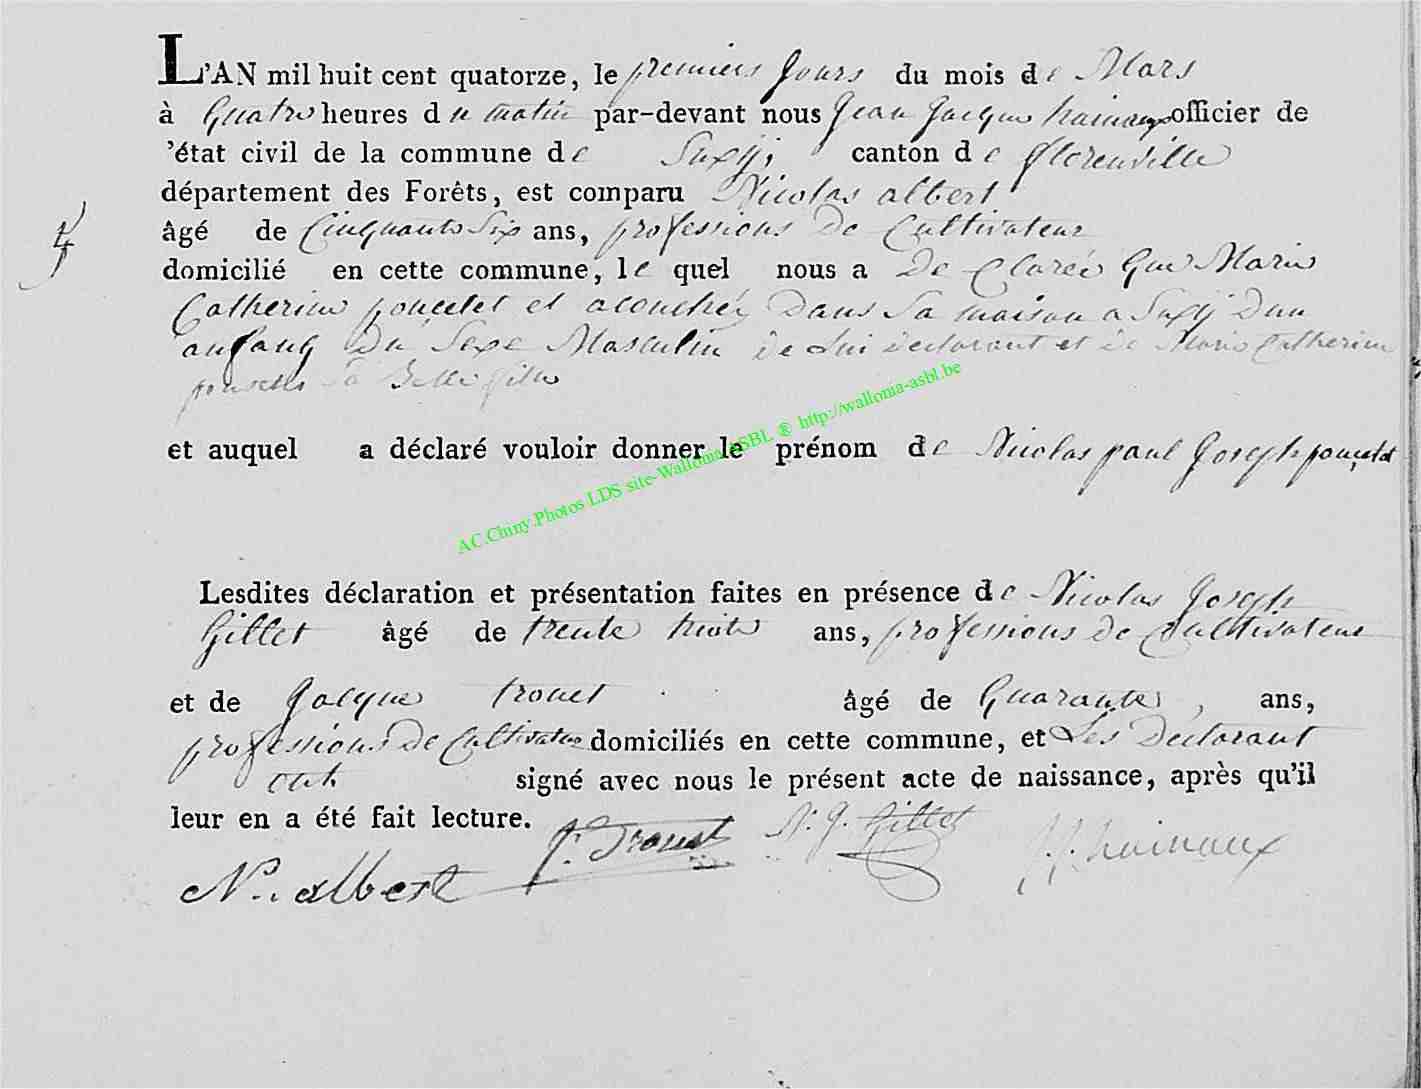 L'AN mil huit cent quatorze, le premiers Jours du mois de Mars
à Quatre heures du matin par-devant nous Jean Jacque hainaux officier de
'état civil de la commune de Suxÿ, canton de florenville
département des Forêts, est comparu Nicolas albert
4
âgé de Cinquante Six ans, professions De Cultivateur
domicilié en cette commune, le quel nous a De Clareé Que Marie
Catherine poncelet et acouchéz Dans Sa maison a Suxÿ Dun
anfang Du Sexe Masculin de Lui declarant et de Marie Catherine
Sa Belle fille
et auquel a déclaré vouloir donner le prénom de Nicolas paul Joseph poncelet
AC.Chiny.Photos LDS site-Wallonia ASBL ® http://wallonia-asbl.be
Lesdites déclaration et présentation faites en présence de Nicolas Joseph
Gillet âgé de trente huite ans, professions de Cultivateur
et de Jacque trouet âgé de Quarante, ans,
professions De Cultivateur domiciliés en cette commune, et Les Declarant
signé avec nous le présent acte de naissance, après qu'il
leur en a été fait lecture.
J. Trouet N. J. Gillet J. J. hainaux
N.. albert